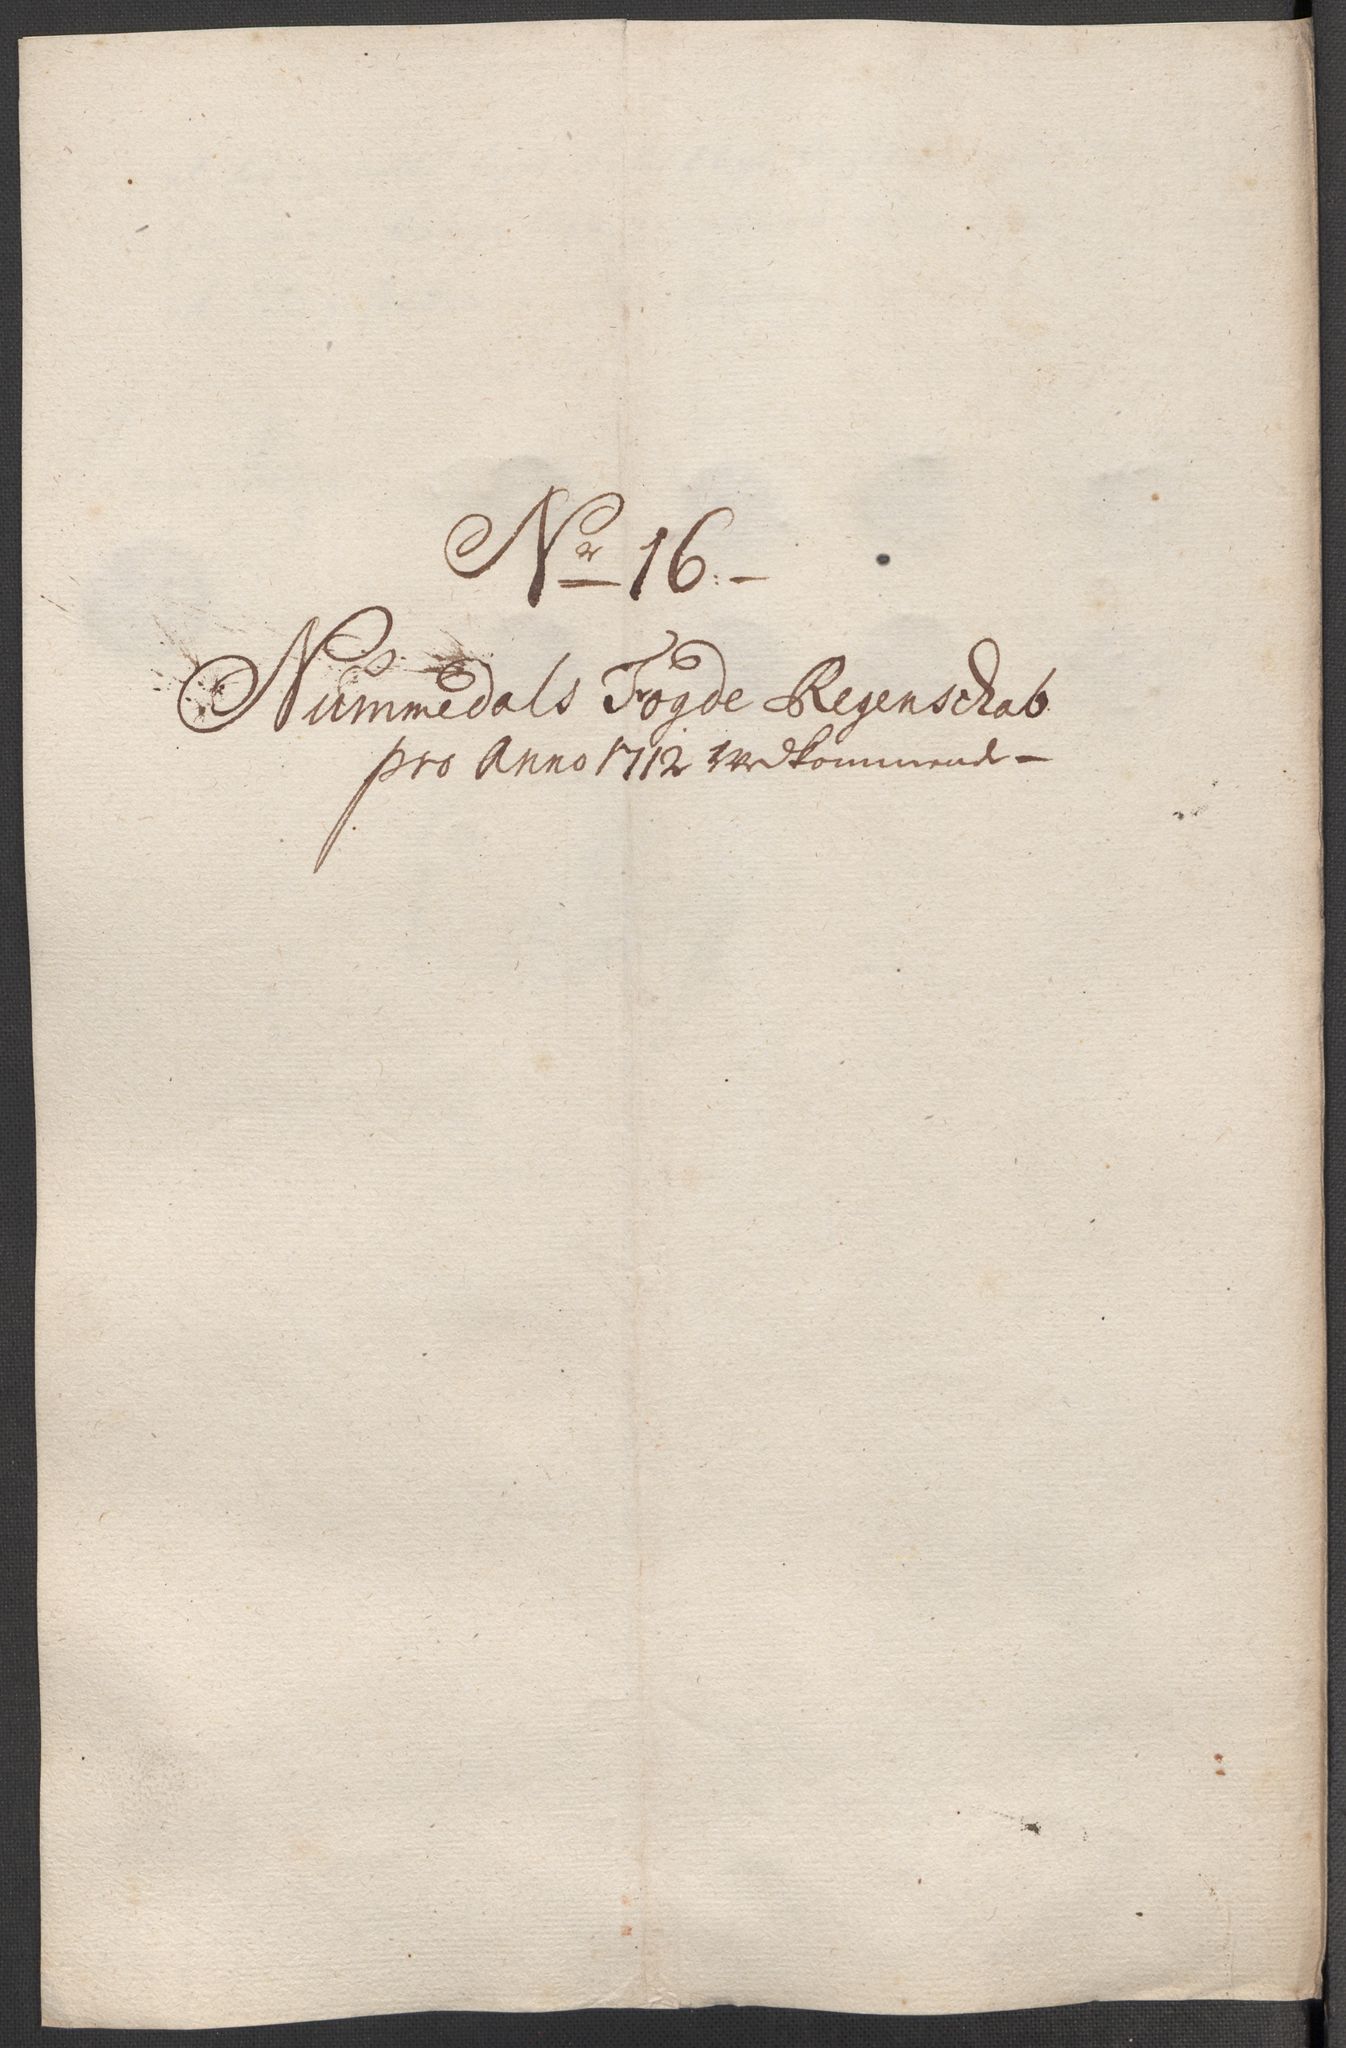 Nr 16.-
Nummedals Fogde Regenschab
pro Anno 1712 vedkommende-